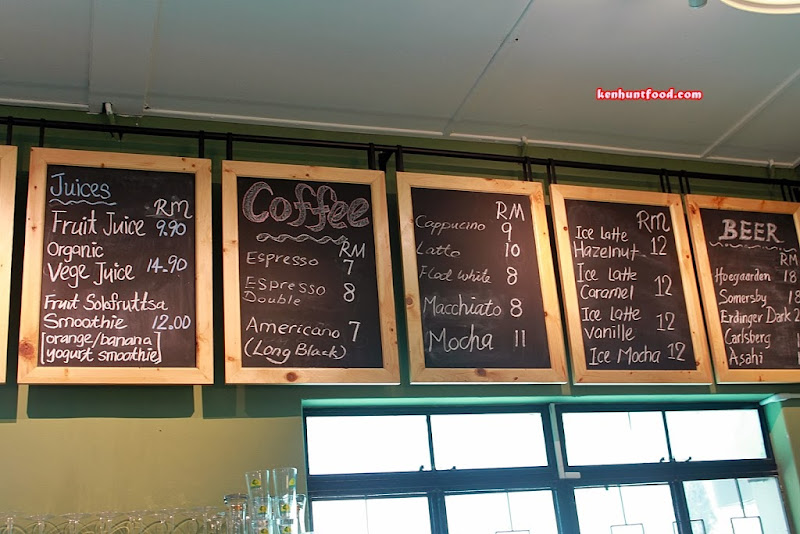 kenhuntfood.com
Juices
RM
Fruit Juice 9.90
Organic
Vege Juice 14.90
Fruit Solofruttsa
Smoothie 12.00
[orange/banana
yogurt smoothie]
Coffee
RM
Espresso 7
Espresso
Double 8
Americano 7
(Long Black)
RM
Cappucino 9
Latto 10
Flad White 8
Macchiato 8
Mocha 11
RM
Ice Latte
Hazelnut 12
Ice Latte
Caramel 12
Ice Latte
Vanille 12
Ice Mocha 12
BEER
RM
Hoegaarden 18
Somersby 18
Erdinger Dark 2
Carlsberg
Asahi